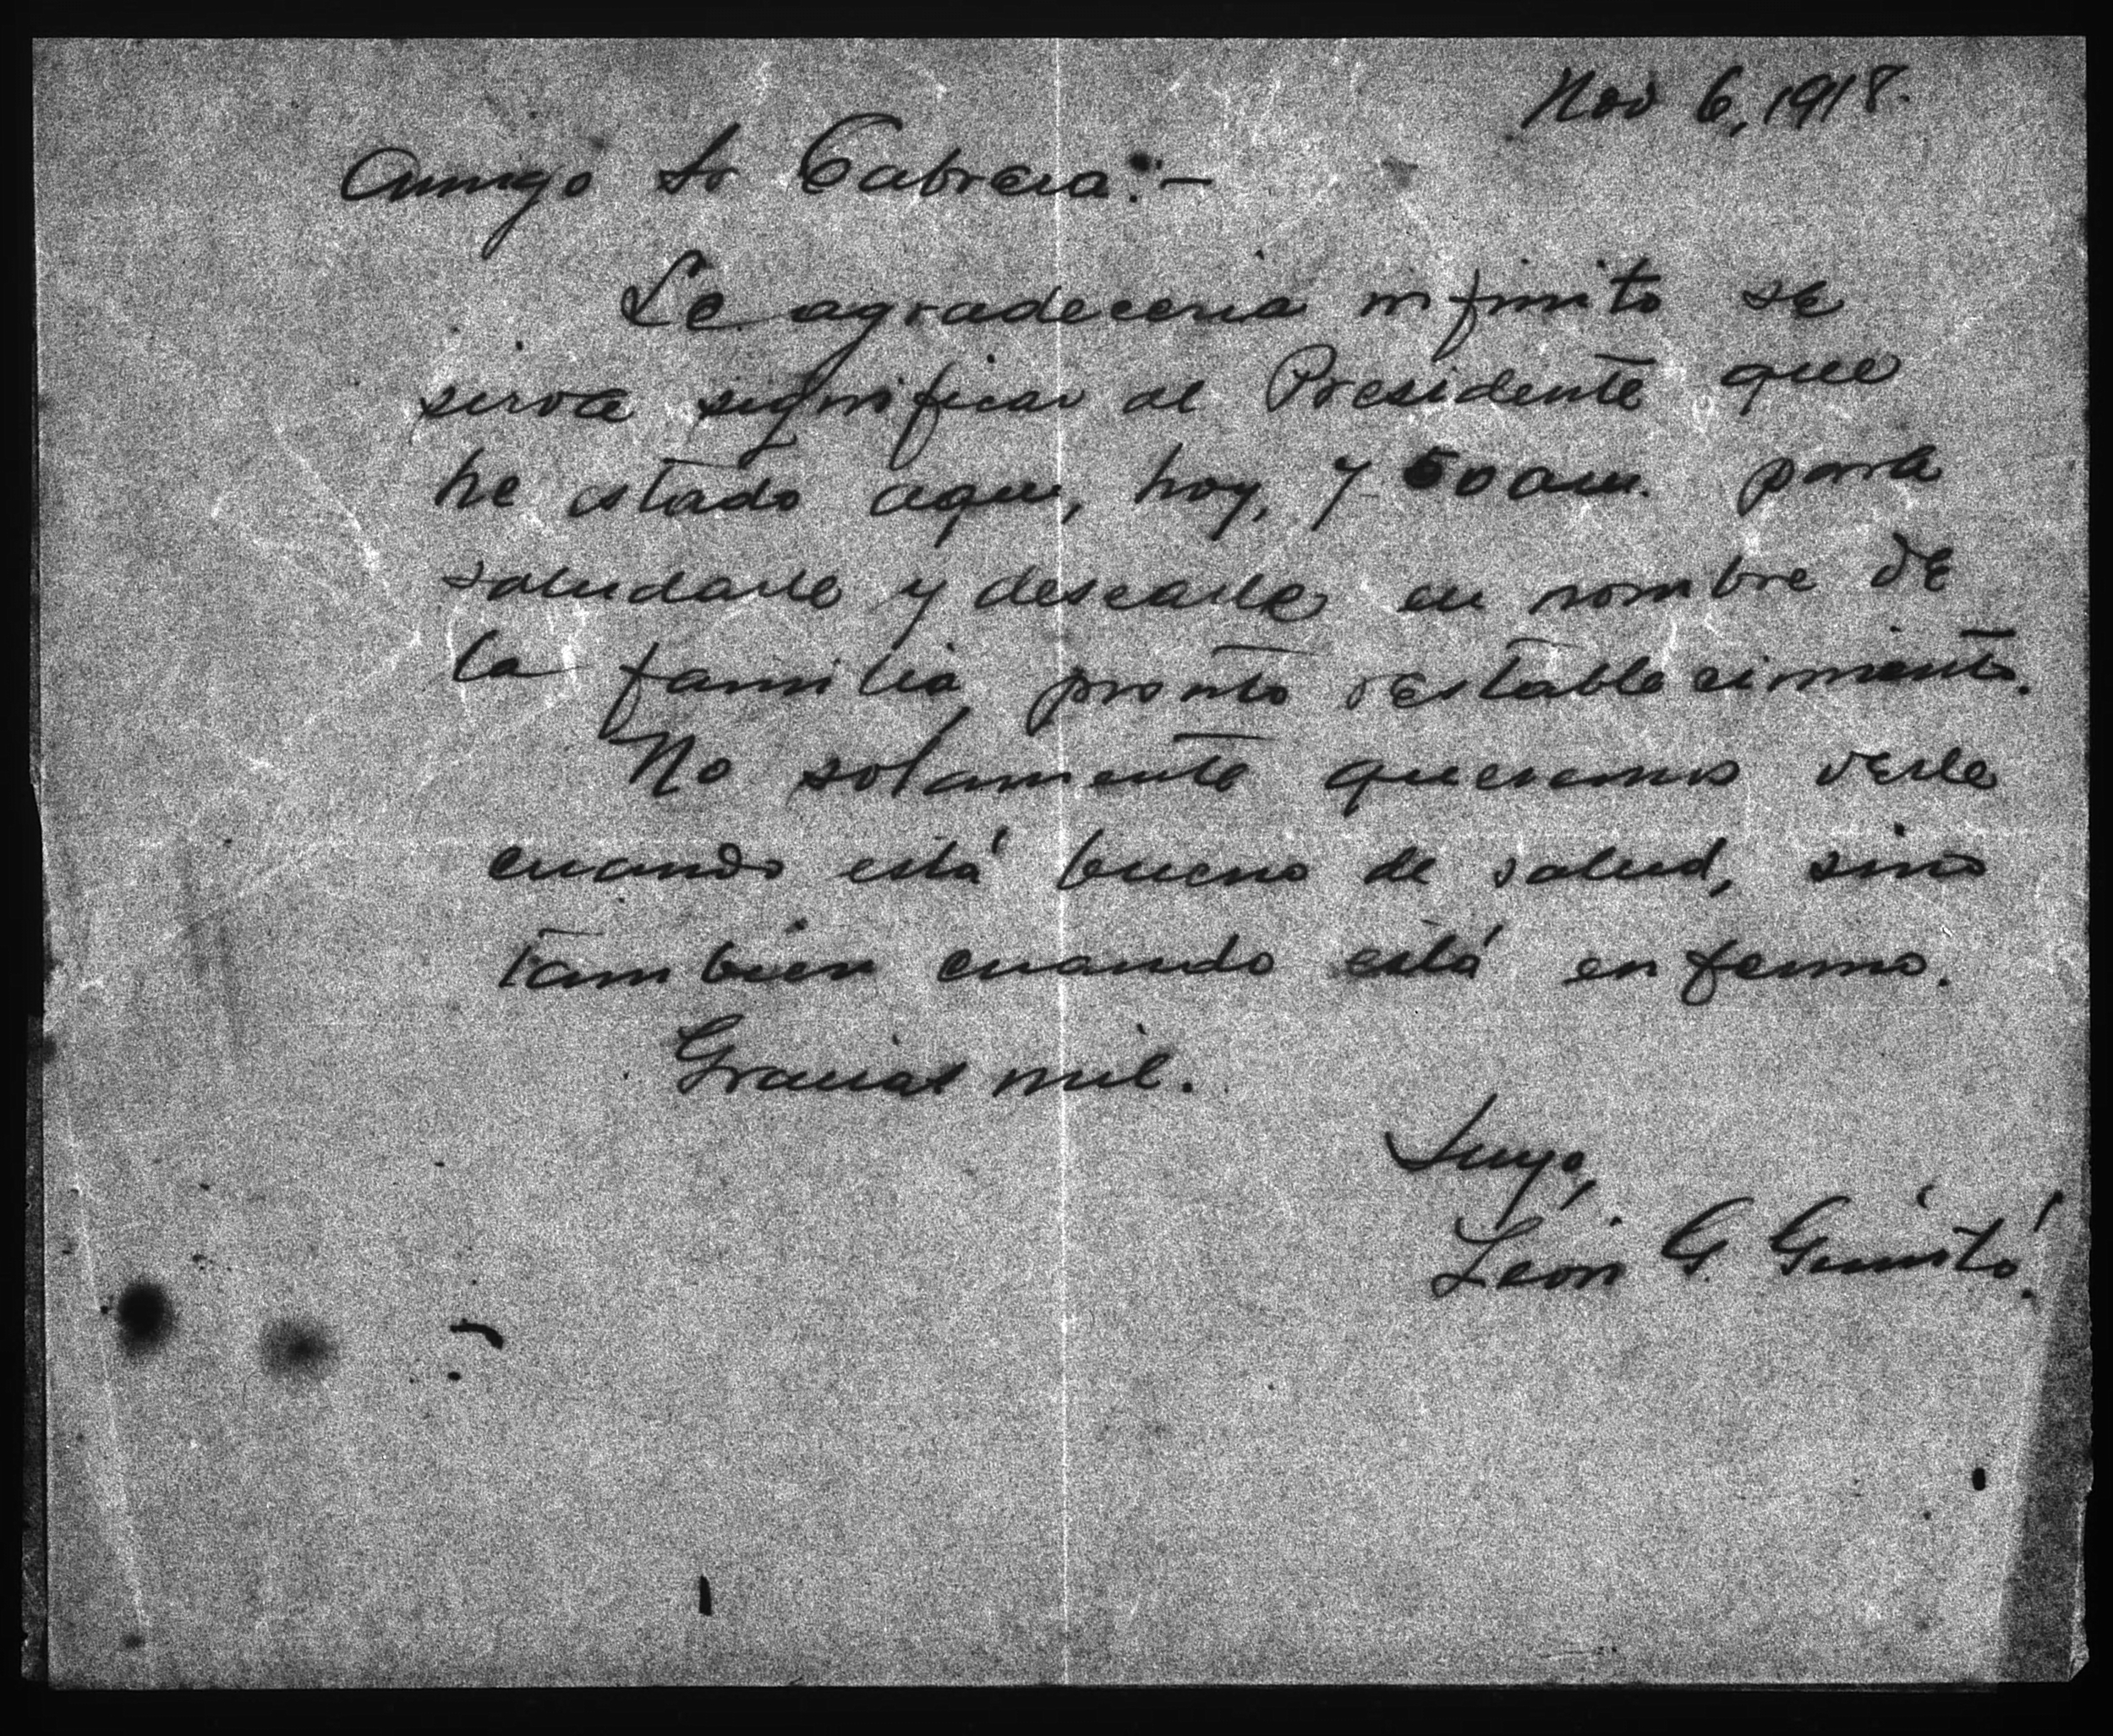 Nov 6, 1918.
Amigo Sr Cabrera:—
Le agradeceria infinito se
sirva significar al Presidente que
he estado aqui, hoy, 7 50 am. para
saludarle y desearle en nombre de
la familia pronto restablecimiento.
No solamente queremos verle
cuando está bueno de salud, sino
tambien cuando está enfermo.
Gracias mil.
Suyo,
León G. Guintó